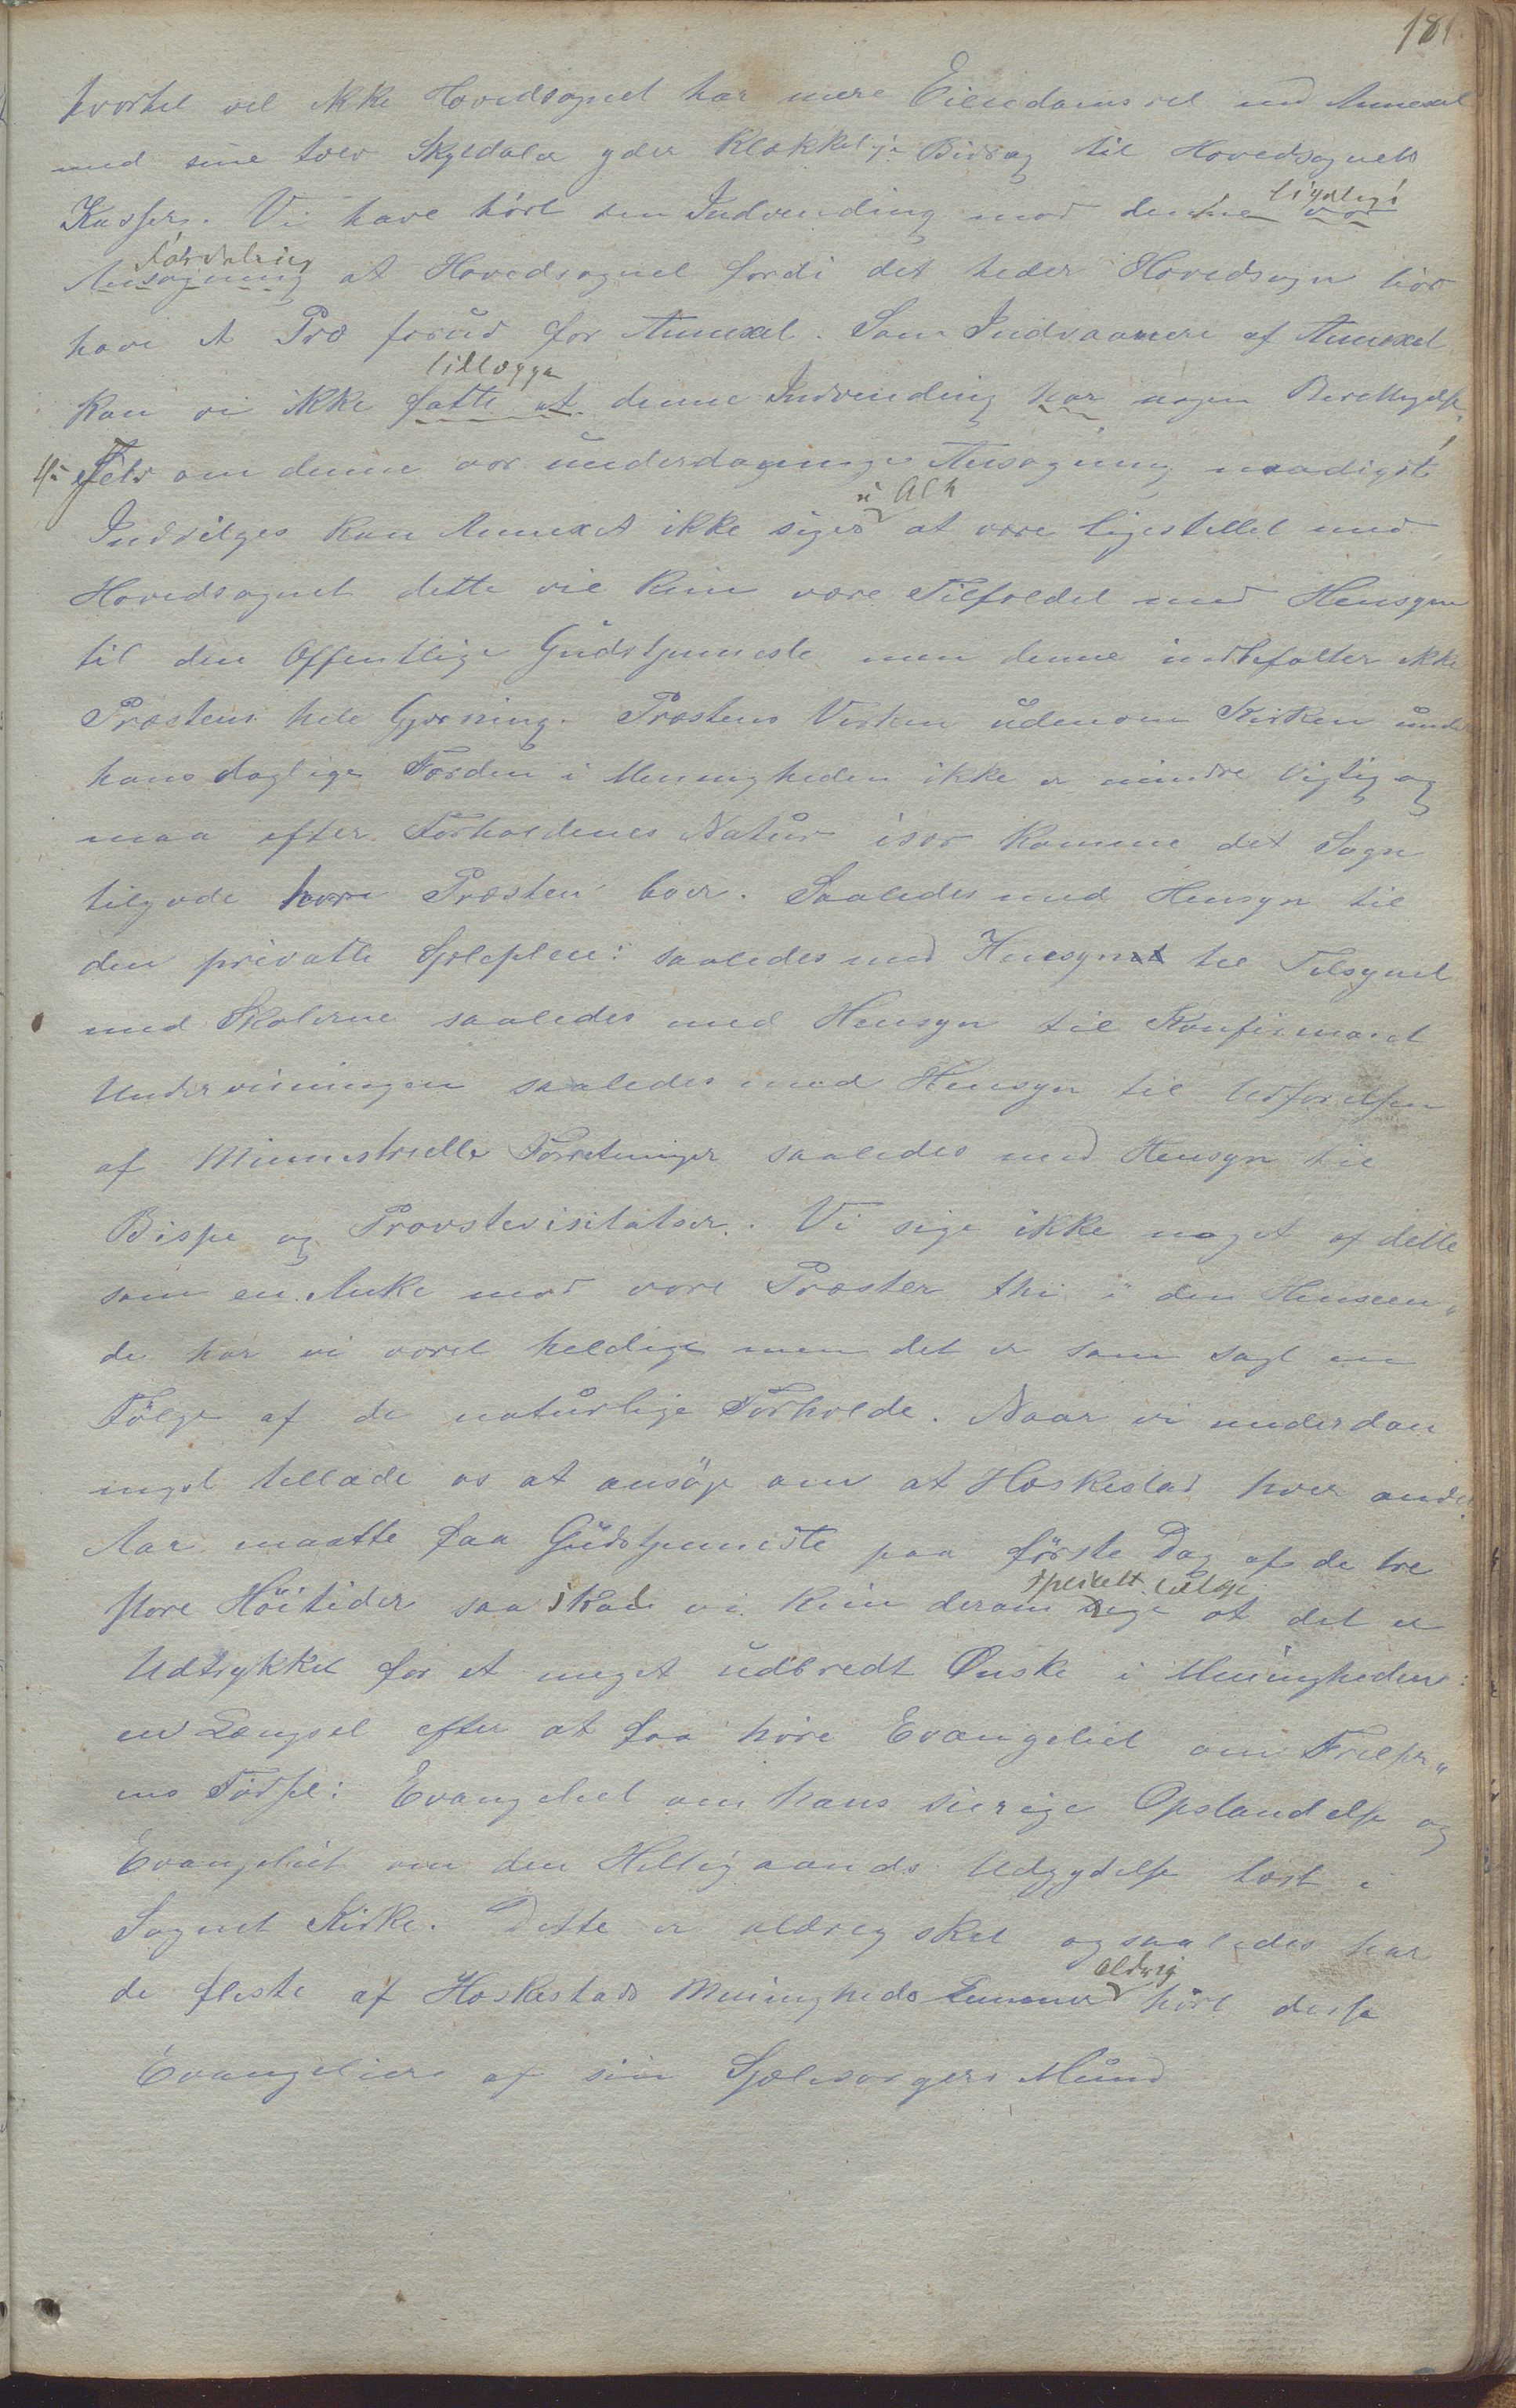 181.
hvortil vel ikke Hovedsognet har mere Eiendoms ret end Annexet
med sine tolv Skyldaler yder Klækkelige Bidrag til Hovedsognets
Kasser. Vi have hört den Indvending mod denne vor
ligelige
fordeling
Ansøgning at Hovedsognet fordi det heder Hovedsogn bör
have et Præ forud for Annexet. Som Indvaanere af Annexet
tillægge
kan vi ikke fatte at denne Indvending har nogen Berettigelse,
Selv om denne vor underdanige Ansøgning naadigst
i Alt
Indvilges kan Annexet ikke siges at være ligestillet med
Hovedsognet dette vil kun være Tilfældet med Hensyn
til den Offentlige Gudstjeneste men denne indbefatter ikke
Præstens hele Gjerning. Præstens Virken udenom Kirken
hans daglige Færden i Menigheden ikke er mindre Vigtig og
maa efter Forholdenes Natur især komme det Sogn
tilgode hvor Præsten boer. Saaledes med Hensyn til
den private Sjælepleie: saaledes med Hensyn til Tilsynet
med Skolerne saaledes med Hensyn til Konfirmant
Undervisningen saaledes med Hensyn til Udførelsen
af Ministrielle Forretninger saaledes med Hensyn til
Bispe og Provstevisitatser. Vi sige ikke noget af dette
som en Anke mod vore Præster thi i den Henseen„
de har vi været heldige men det er som sagt en
Fölge af de naturlige Forholde. Naar vi underdan
ingst tillade os at ansöge om at Hæskestad hver andet
Aar maatte faa Gudstjeneste paa förste Dag af de tre
store Höitider saa skal vi kun derom sige at det er
specielt tilføje
Udtrykket for et meget udbredt Ønske i Menigheden:
en Længsel efter at faa höre Evangeliet om Frelser„
ens Födsel: Evangeliet om hans seierige Opstandelse og
Evangeliet om den Helligaands Udgydelse læst i
Sognet Kirke. Dette er aldrig skeet og saaledes har
aldrig
de fleste af Hæskestads Menigheds Lemmer hört disse
Evangelier af sin Sjælesorgers Mund